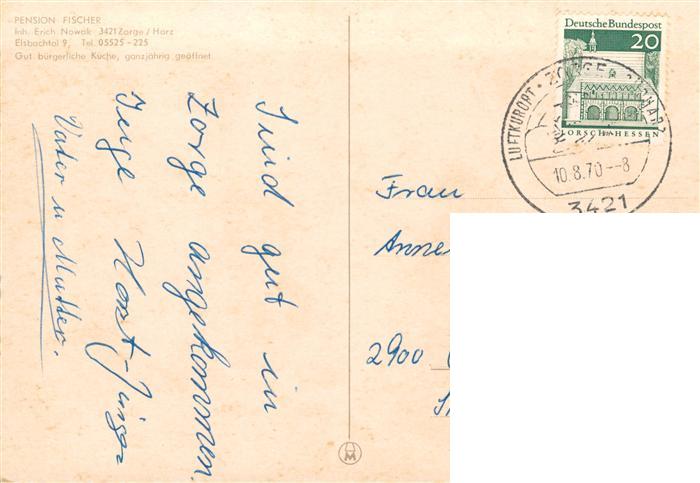 PENSION FISCHER
Inh. Erich Nowak 3421 Zorge / Harz
Elsbachtal 9, Tel. 05525 - 225
Gut bürgerliche Küche, ganzjährig geöffnet
Deutsche Bundespost
20
LORSCH-HESSEN
LUFTKURORT
HARZ
10.8.70--8
3421
Sind gut in
Zorge angekommen.
Horst-
Vater u Mutter.
Frau
Anne
2900